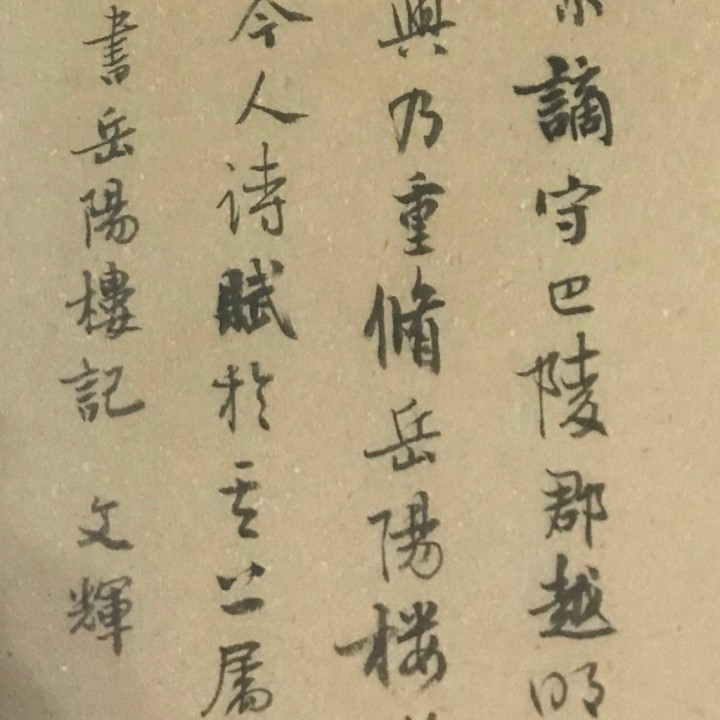 京謫守巴陵郡越明
興乃重脩岳陽楼
今人诗賦於其上屬
書岳陽樓記 文輝